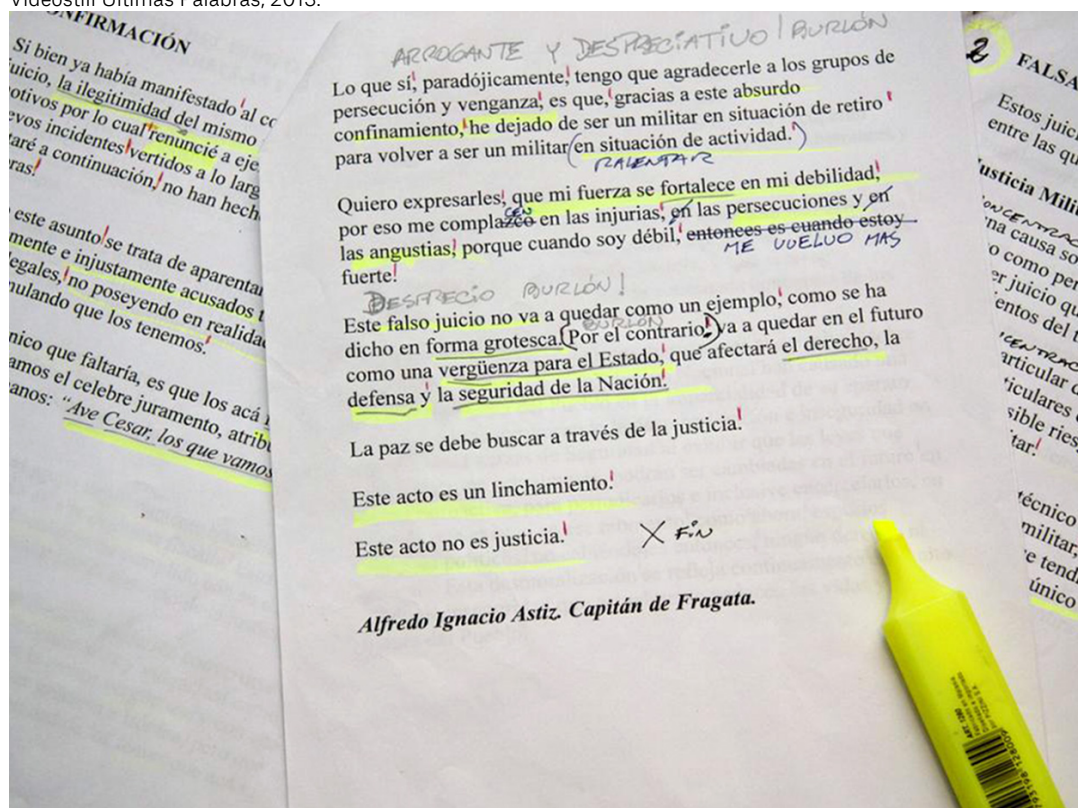 Videostill Últimas Palabras, 2015.
ONFIRMACIÓN
Si bien ya había manifestado al
juicio, la ilegitimidad del mismo
otivos por lo cual renuncié a eje
evos incidentes vertidos a lo larg
taré a continuación, no han hech
ras!
este asunto se trata de aparentar
mente e injustamente acusados
egales, no poseyendo en realidad
mulando que los tenemos.
nico que faltaría, es que los acá
amos el celebre juramento, atrib
anos: “Ave Cesar, los que vamos
ARROGANTE Y DESPRECIATIVO / BURLÓN
Lo que sí, paradójicamente, tengo que agradecerle a los grupos de
persecución y venganza, es que, gracias a este absurdo
confinamiento, he dejado de ser un militar en situación de retiro
para volver a ser un militar (en situación de actividad.)
RALENTAR
Quiero expresarles, que mi fuerza se fortalece en mi debilidad,
CEN
por eso me complazco en las injurias, en las persecuciones y en
las angustias, porque cuando soy débil, entonces es cuando estoy
ME VUELVO MAS
fuerte!
DESPRECIO BURLÓN!
Este falso juicio no va a quedar como un ejemplo, como se ha
BURLÓN
dicho en forma grotesca. (Por el contrario,) va a quedar en el futuro
como una vergüenza para el Estado, que afectará el derecho, la
defensa y la seguridad de la Nación.
La paz se debe buscar a través de la justicia.
Este acto es un linchamiento.
Este acto no es justicia.
X FIN
Alfredo Ignacio Astiz. Capitán de Fragata.
2
FALSA
Estos juici
entre las qu
usticia Milit
ONCENTRAC
na causa so
o como per
er juicio qu
entos del t
CENTRAC
articular
ticulares
sible ries
tar.
técnico
militar,
e tend
único
ART. 1280